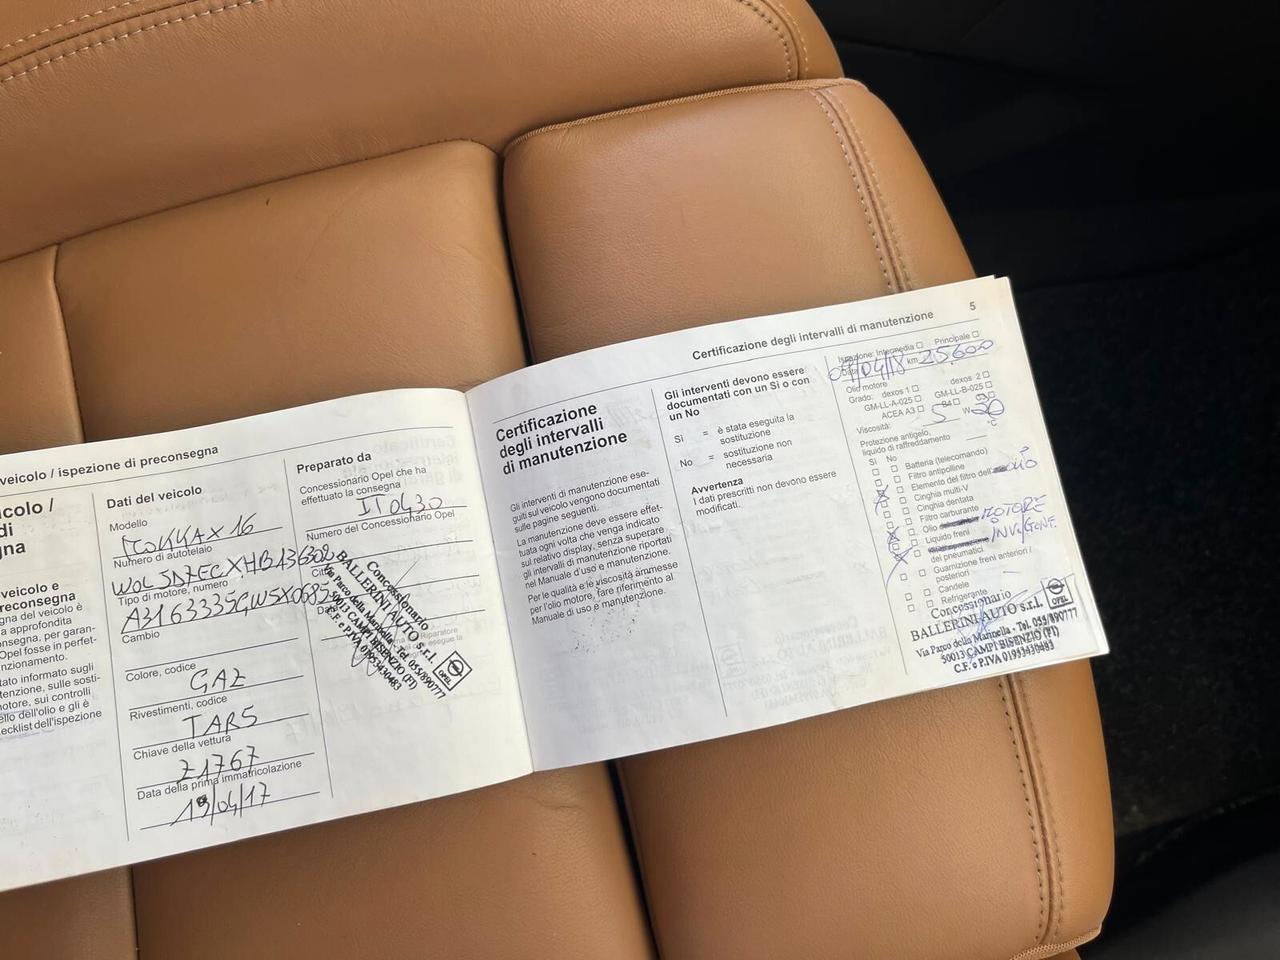 veicolo / ispezione di preconsegna
icolo /
di
gna
veicolo e
reconsegna
gna del veicolo è
a approfondita
onsegna, per garan-
Opel fosse in perfet-
nzionamento.
tato informato sugli
tenzione, sulle sosti-
motore, sui controlli
ello dell'olio e gli è
ecklist dell'ispezione
Dati del veicolo
Modello
MOKKA X 16
Numero di autotelaio
Tipo di motore, numero
Cambio
Colore, codice
GAZ
Rivestimenti, codice
TAR5
Chiave della vettura
Z1767
Data della prima immatricolazione
19/04/17
Preparato da
Concessionario Opel che ha
effettuato la consegna
IT0430
Numero del Concessionario Opel
Concessionario
BALLERINI AUTO s.r.l.
Via Parco della Marinella - Tel. 055/890777
50013 CAMPI BISENZIO (FI)
C.F. e P.IVA 01953430483
OPEL
Certificazione degli intervalli di manutenzione
5
Certificazione
degli intervalli
di manutenzione
Gli interventi di manutenzione ese-
guiti sul veicolo vengono documentati
sulle pagine seguenti.
La manutenzione deve essere effet-
tuata ogni volta che venga indicato
sul relativo display, senza superare
gli intervalli di manutenzione riportati
nel Manuale d'uso e manutenzione.
Per le qualità e le viscosità ammesse
per l'olio motore, fare riferimento al
Manuale di uso e manutenzione.
Gli interventi devono essere
documentati con un Sì o con
un No
Sì = è stata eseguita la
sostituzione
No = sostituzione non
necessaria
Avvertenza
I dati prescritti non devono essere
modificati.
Ispezione: Intermedia Principale
Data 09/04/18 km 25.600
Olio motore
Grado: dexos 1 dexos 2
GM-LL-A-025 GM-LL-B-025
ACEA A3 B4 C3
Viscosità: 5 W 30
Protezione antigelo, °C
liquido di raffreddamento
Sì No
Batteria (telecomando)
Filtro antipolline
Elemento del filtro dell' olio
Cinghia multi-V
Cinghia dentata
Filtro carburante
Olio MOTORE
Liquido freni INV/GONF.
dei pneumatici
Guarnizione freni anteriori /
posteriori
Candele
Refrigerante
Concessionario
BALLERINI AUTO s.r.l.
OPEL
Via Parco della Marinella - Tel. 055/890777
50013 CAMPI BISENZIO (FI)
C.F. e P.IVA 01953430483